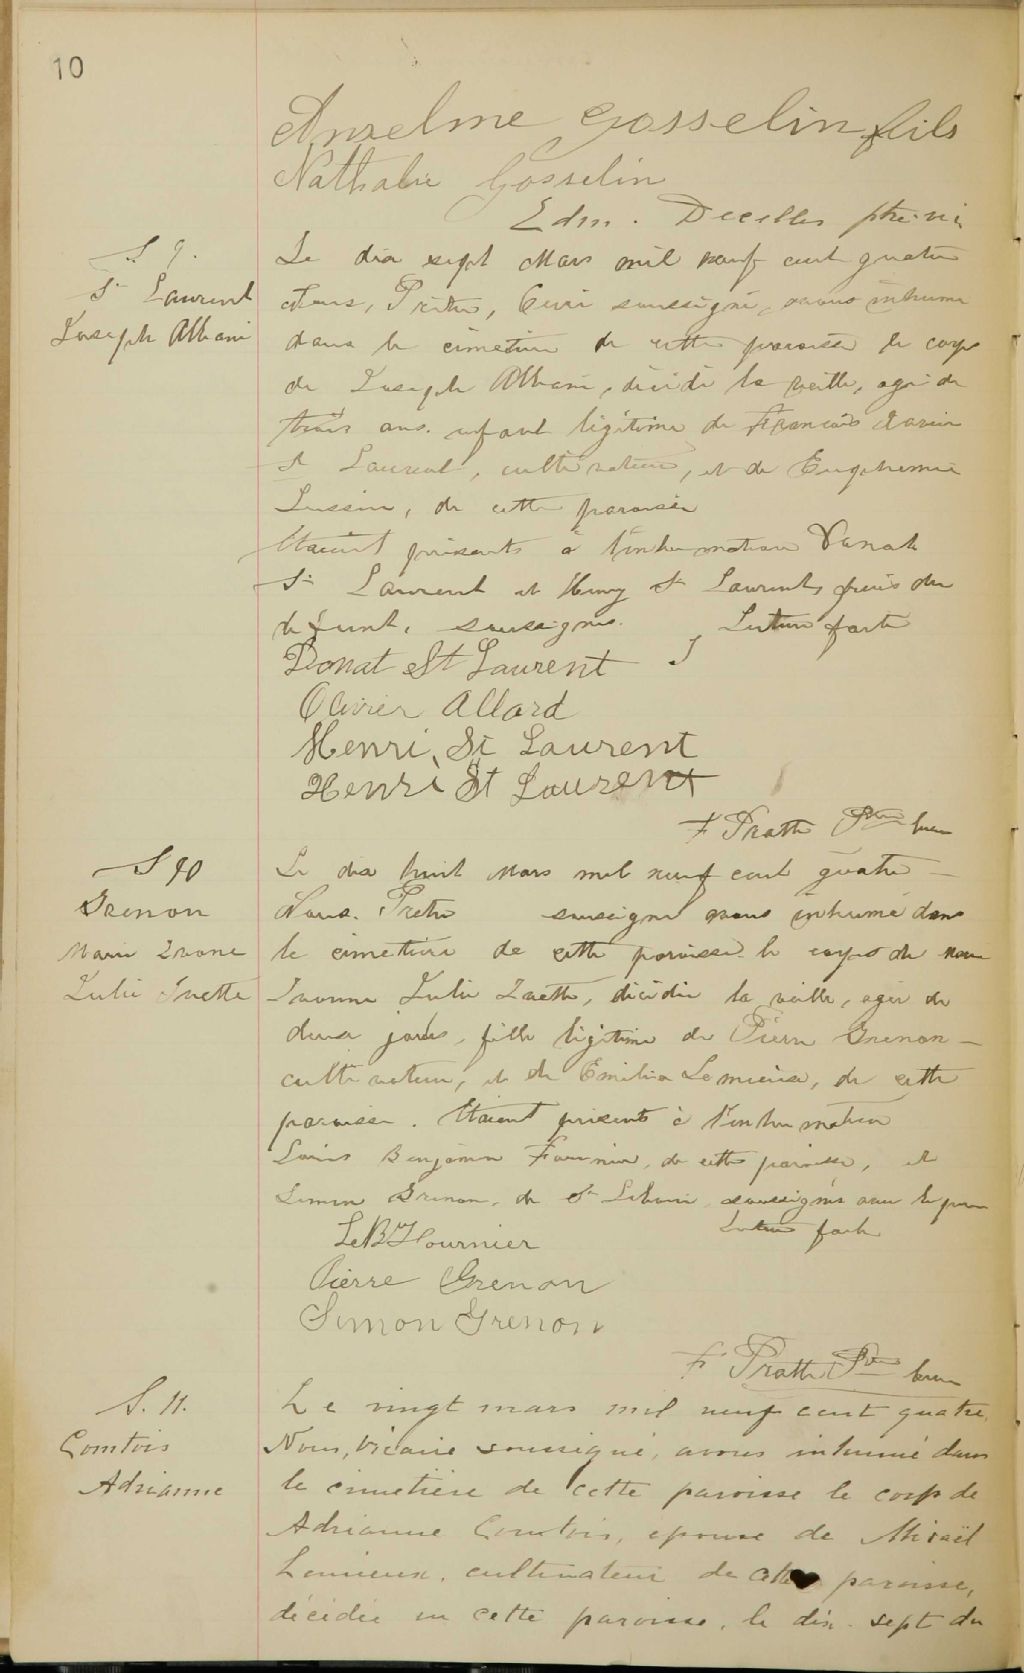 10
Anselme Gosselin fils
Nathalie Gosselin
Edm. Decelles ptre. vic.
S 9.
St Laurent
Joseph Albani
Le dix sept Mars mil neuf cent quatre
Nous, Prêtre, Curé soussigné, avons inhumé
dans le cimetière de cette paroisse le corps
de Joseph Albani, décédé la veille, agé de
trois ans. enfant légitime de François Xavier
St Laurent, cultivateur, et de Euphemie
Lussier, de cette paroisse
Etaient présents à l'inhumation Donat
St Laurent et Henry St Laurent, frères du
defunt, soussignés. Lecture faite
Donat St Laurent
Olivier Allard
Henri St Laurent
Henri St Laurent
F Pratte Ptre Curé
S 10
Grenon
Marie Ivone
Julie Ivette
Le dix huit Mars mil neuf cent quatre –
Nous. Prêtre soussigné avons inhumé dans
le cimetière de cette paroisse le corps de Marie
Ivonne Julie Ivette, décédée la veille, agée de
deux jours, fille légitime de Pierre Grenon –
cultivateur, et de Emilia Lemieux, de cette
paroisse. Etaient présents à l'inhumation
Louis Benjamin Fournier, de cette paroisse, et
Simon Grenon, de St Liboire soussignés avec le père
Lecture faite
Ls B Fournier
Pierre Grenon
Simon Grenon
F Pratte Ptre Curé
S. 11.
Comtois
Adrianne
Le vingt mars mil neuf cent quatre,
Nous, Vicaire soussigné, avons inhumé dans
le cimetière de cette paroisse le corps de
Adrianne Comtois, épouse de Misaël
Lemieux, cultivateur de cette paroisse,
décédée en cette paroisse, le dix-sept du